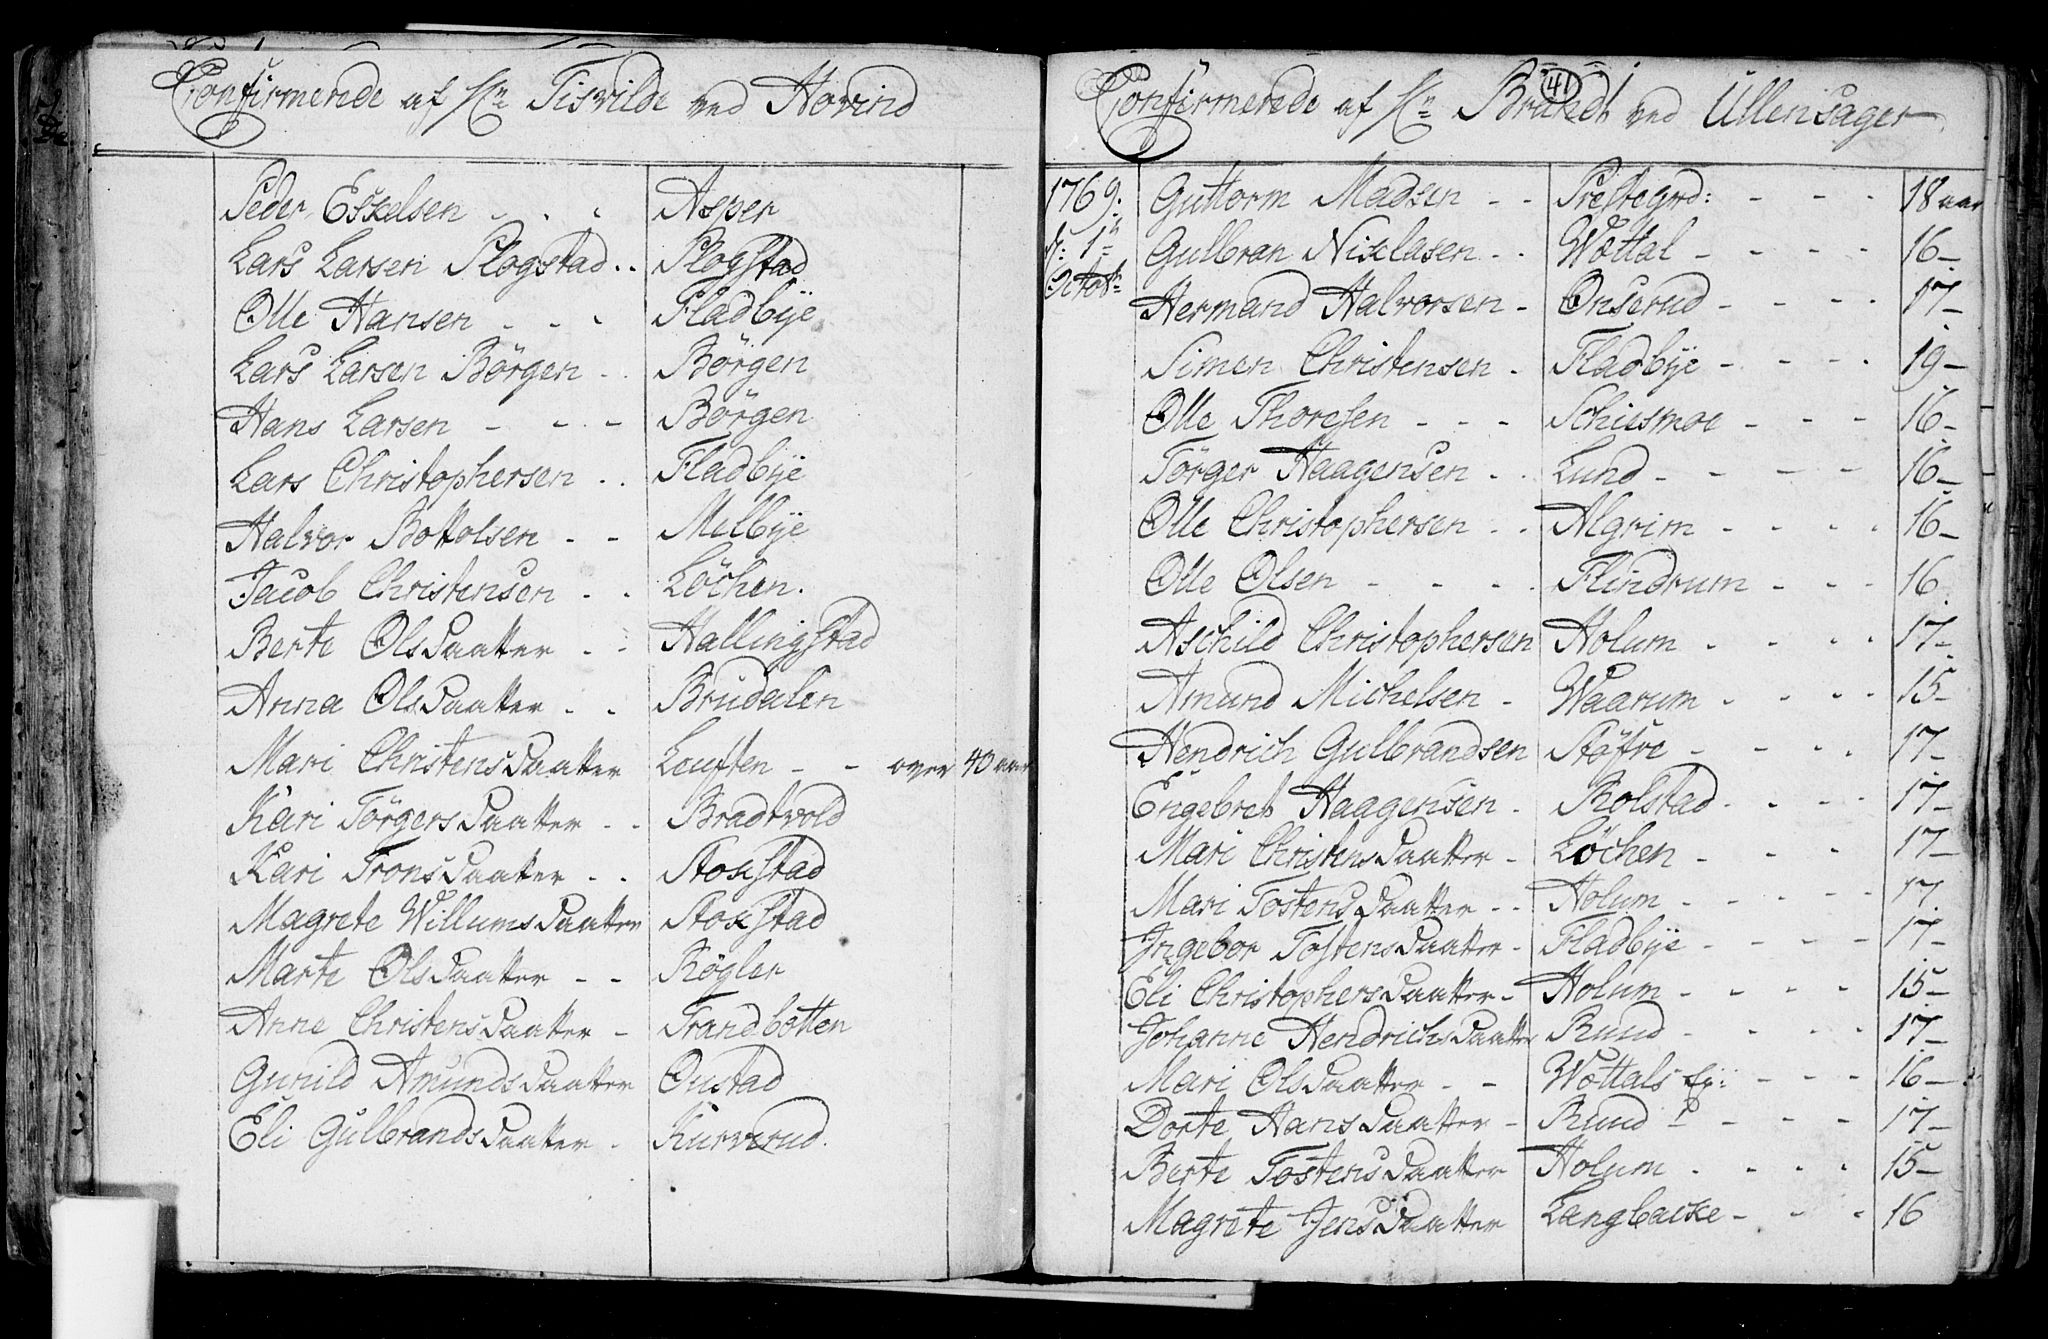 Confirmerede af Hr Tisvilde ved Hovind
Peder Eskelsen - - - Asper
Lars Larsen Plogstad .. Plogstad
Olle Hansen - - - Fladbÿe
Lars Larsen Börgen - . Börgen
Hans Larsen - - - Börgen
Lars Christophersen . . Fladbÿe
Halvor Bottolsen - - Melbÿe
Jacob Christensen - . Löchen.
Berte Olsdaatter - - Hallingstad
Anna Olsdaatter . . Brudalen
Mari Christensdaatter Leuften - - over 40 aar
Kari Törgersdaatter - . Bradtvold
Kari Tronsdaatter - . Stoxstad
Magrete Willumsdaatter Stoxstad
Marte Olsdaatter - - Rögler
Anne Christensdaatter - Trandbotten
Gunild Amundsdaatter Onstad
Eli Gulbrandsdaatter - Kurverud.
41
Confirmerede af Hr Brandt ved Ullensager
1769. Guttorm Madsen - - Prestegrd: - - - 18 aar
d: 1te Gulbran Niklasen - . Wottal - - - - 16 -
Octob: Hermand Halvorsen - Onserud - - - - 17 -
Simen Christensen - Fladbÿe - - - . 19 -
Olle Thoresen - - - Schiesmoe - - - 16 -
Törger Haagensen - . Lund - - - - 16 -
Olle Christophersen - . Algrim - - - . 16 -
Olle Olsen - - - . Flindrum - - - 16
Aschild Christophersen Holum - - - . 17 -
Amund Michelsen - Waarum - - - . 15 -
Hendrich Gulbrandsen Stöfre - - - . 17 -
Engebret Haagensen - Rolstad - - - - 17 -
Mari Christensdaatter - Löchen - - - 17 -
Mari Tostensdaatter - . Holum - - - - 17
Ingebor Tostensdaatter - Fladbÿe - - - - 17 -
Eli Christophersdaatter - Holum - - - - 15 -
Johanne Hendrichsdaatter Rund - - - - 17 -
Mari Olsdaatter - - Wottals Ej: - - - 16 -
Dorte Hansdaatter - Rund - - - - 17 -
Berte Tostensdaatter Holum . - - - 15 -
Magrete Jensdaatter Langbacke - - - 16